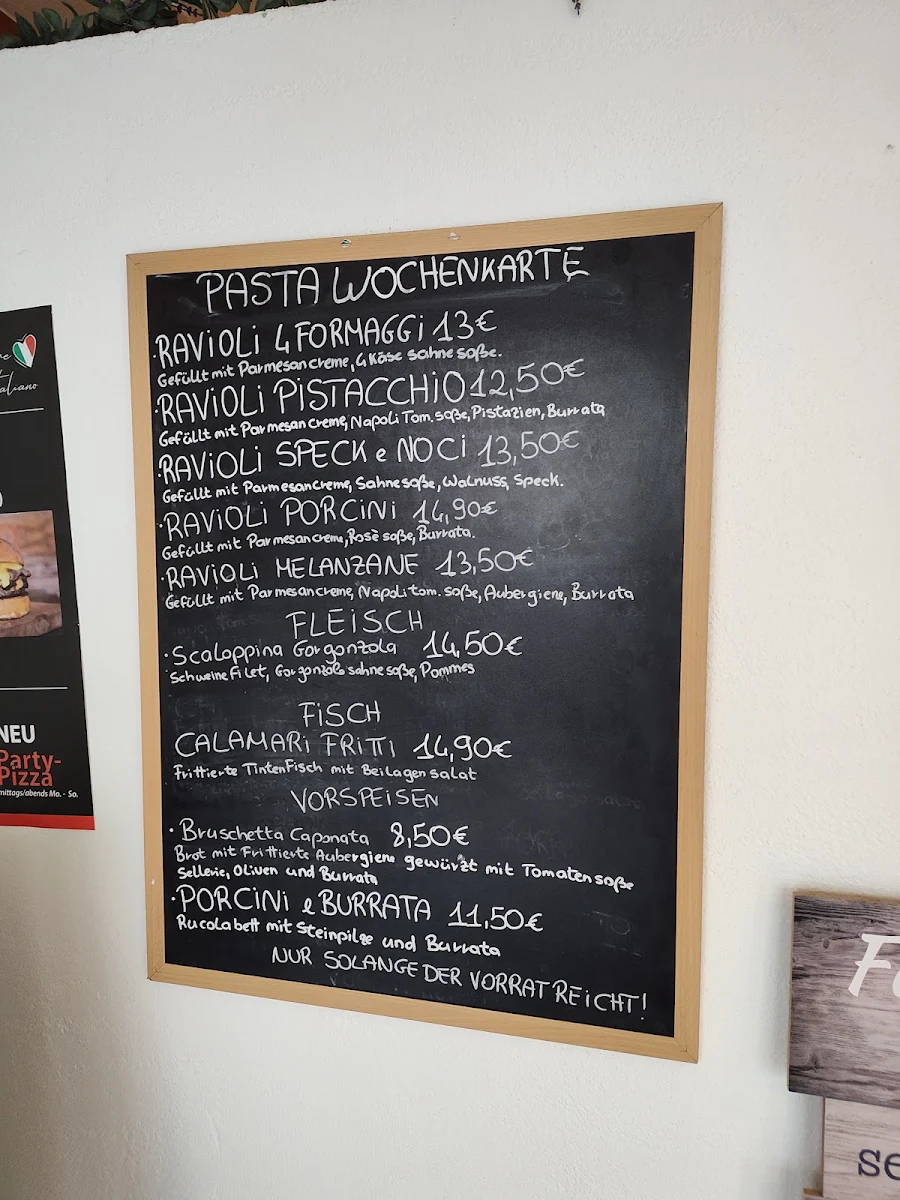 PASTA WOCHENKARTE
·RAViOLi 4 FORMAGGi 13€
Gefüllt mit Parmesancreme, 4 Käse sahne soße.
·RAViOLi PiSTACCHiO 12,50€
Gefüllt mit Parmesancreme, Napoli Tom. soße, Pistazien, Burrata
·RAViOLi SPECK e NOCi 13,50€
Gefüllt mit Parmesancreme, Sahnesoße, Walnuss, Speck.
·RAViOLi PORCiNi 14,90€
Gefüllt mit Parmesancreme, Rosè soße, Burrata.
·RAViOLi MELANZANE 13,50€
Gefüllt mit Parmesancreme, Napoli tom. soße, Aubergiene, Burrata
FLEiSCH
·Scaloppina Gorgonzola 14,50€
SchweineFilet, Gorgonzola sahnesoße, Pommes
FiSCH
CALAMARi FRiTTi 14,90€
Frittierte TintenFisch mit Beilagen salat
VORSPEiSEN
·Bruschetta Caponata 8,50€
Brot mit Frittierte Aubergiene gewürzt mit Tomatensoße
Sellerie, Oliven und Burrata
·PORCiNi e BURRATA 11,50€
Rucolabett mit Steinpilze und Burrata
NUR SOLANGE DER VORRAT REiCHT!
NEU
Party-
Pizza
mittags/abends Mo. - So.